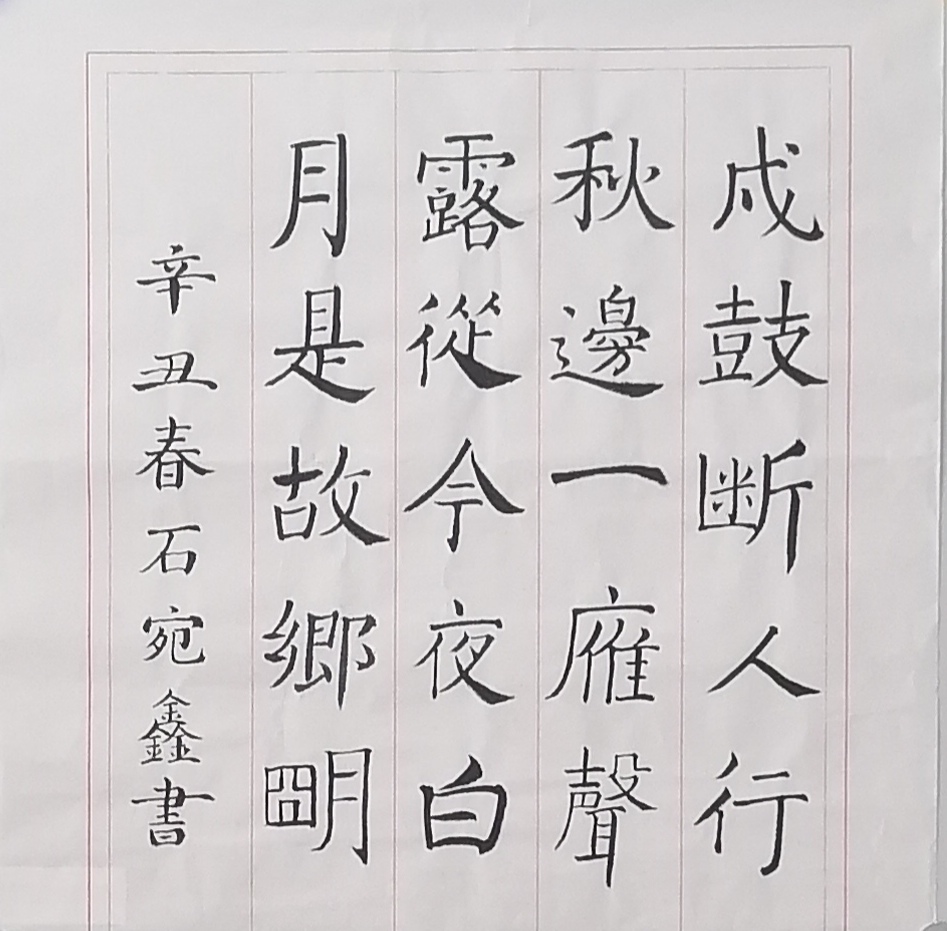 戍鼓断人行
秋邊一雁聲
露從今夜白
月是故鄉朙
辛丑春石宛鑫書